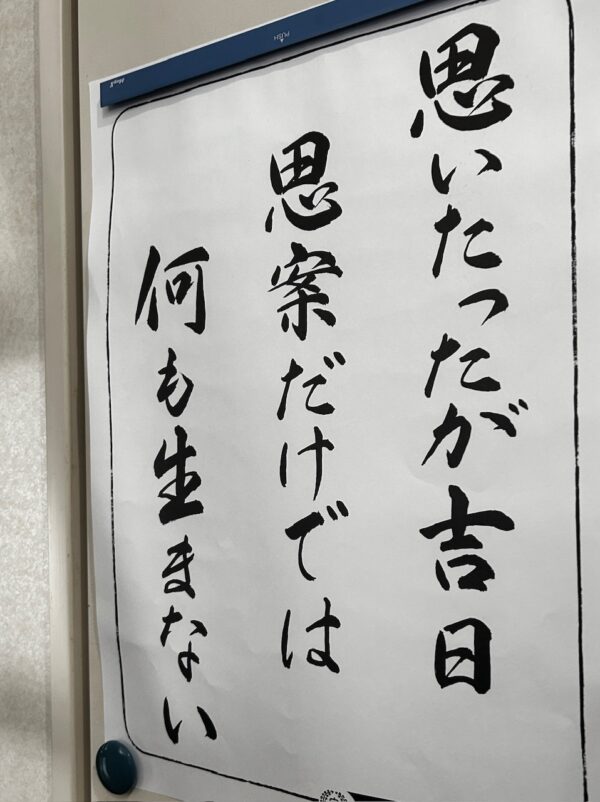 思いたったが吉日
思案だけでは
何も生まない
PUSH